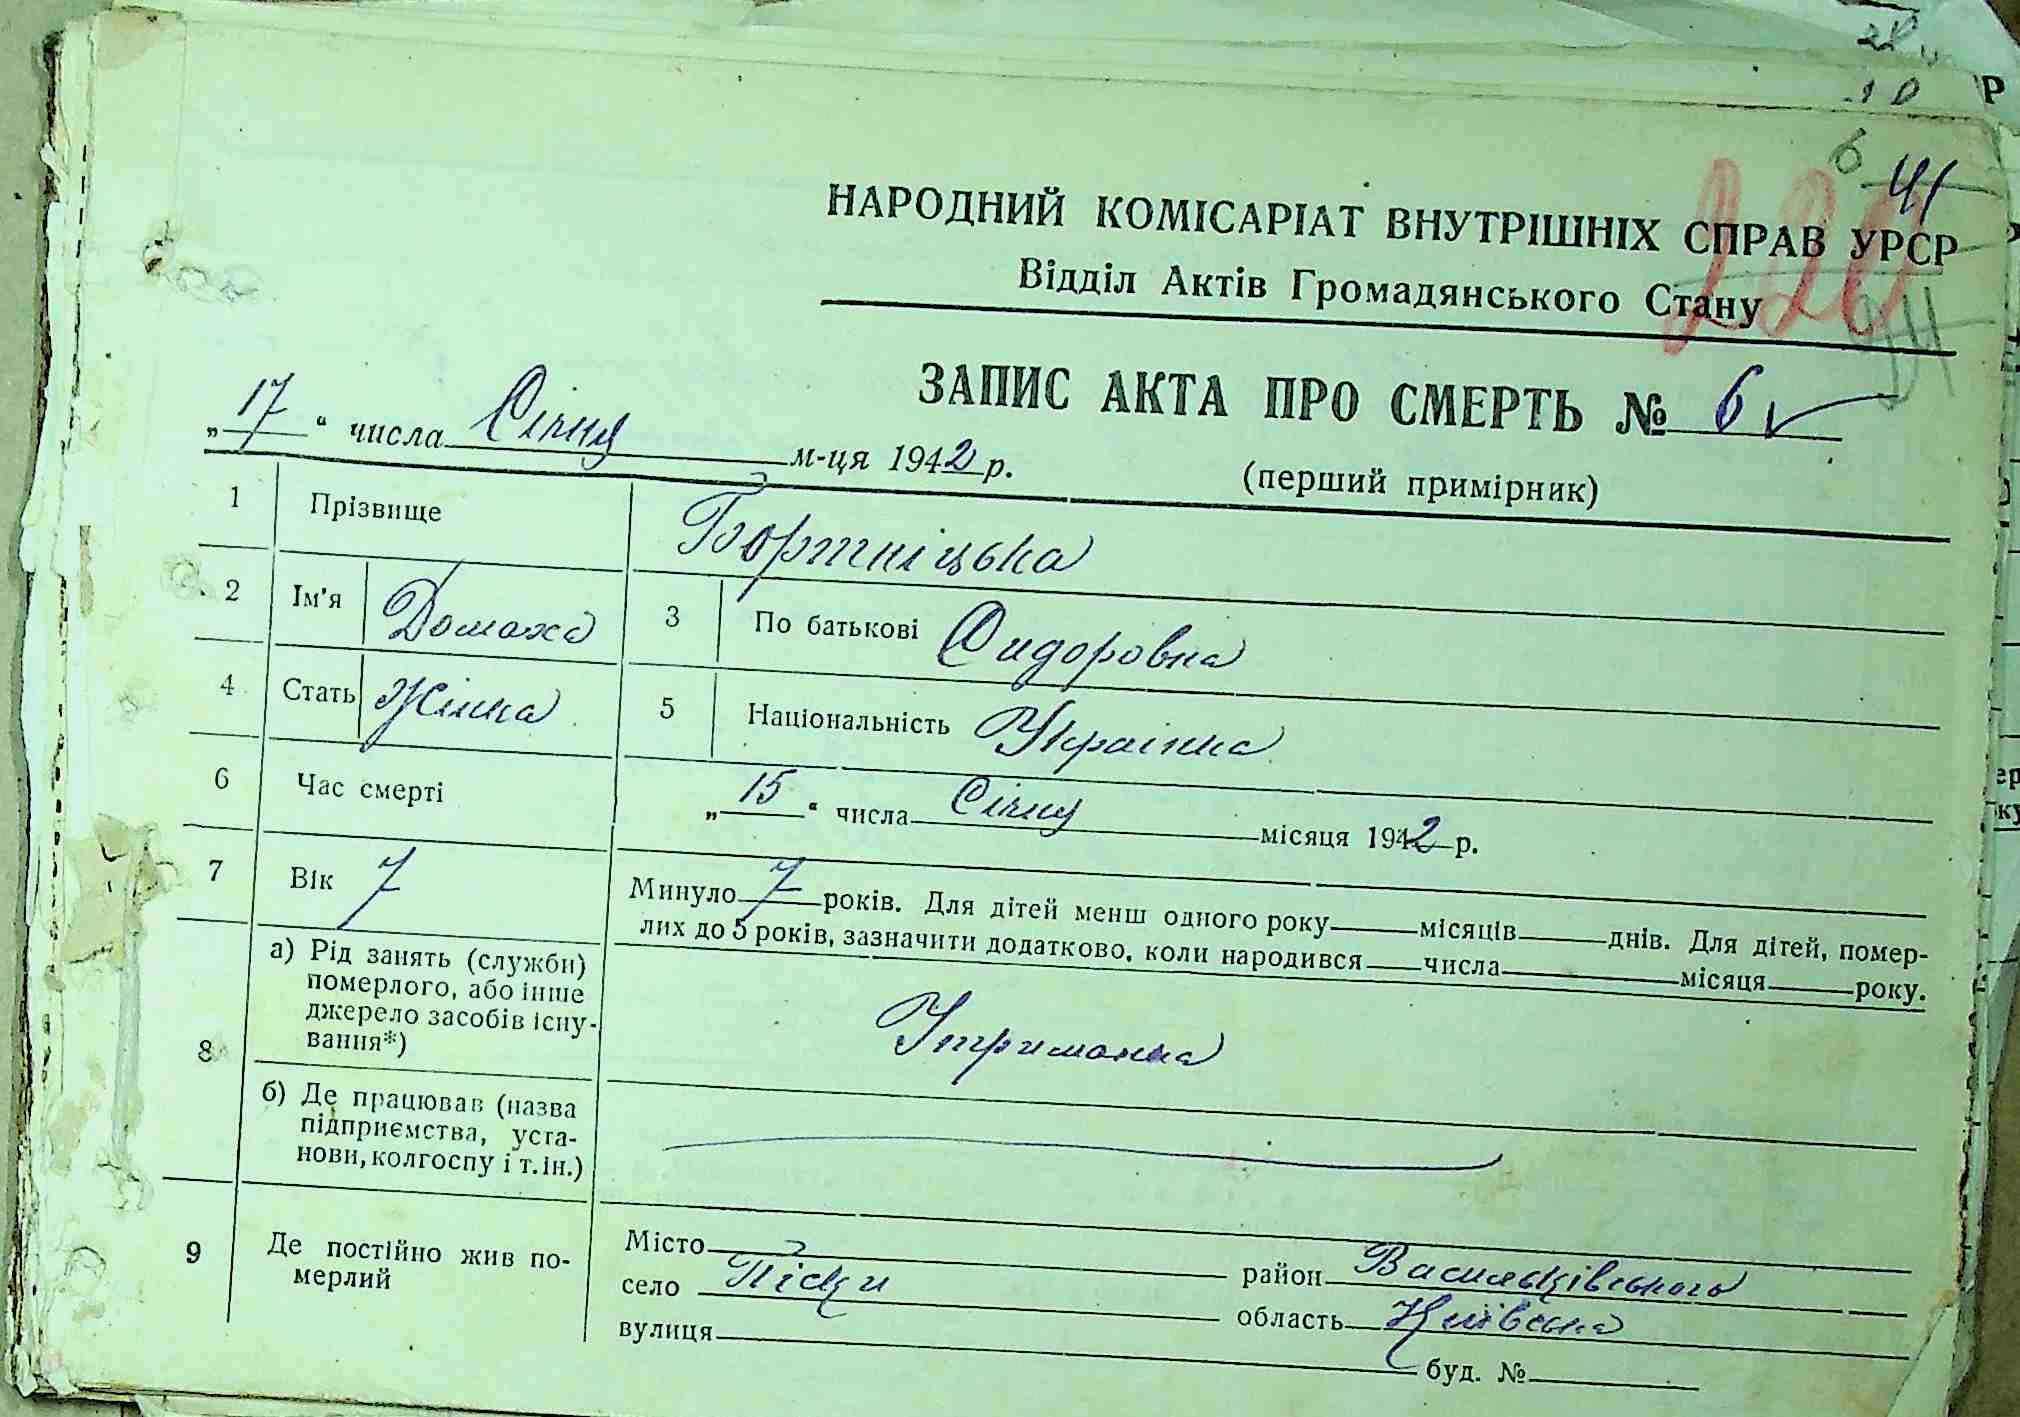 6
41
220
НАРОДНИЙ КОМІСАРІАТ ВНУТРІШНІХ СПРАВ УРСР
Відділ Актів Громадянського Стану
ЗАПИС АКТА ПРО СМЕРТЬ № 6
„17“ числа Січня м-ця 1942 р.
(перший примірник)
1 Прізвище Бортніцька
2 Ім'я Домаха 3 По батькові Сидоровна
4 Стать Жінка 5 Національність Українка
6 Час смерті „15“ числа Січня місяця 1942 р.
7 Вік 7 Минуло 7 років. Для дітей менш одного року місяців днів. Для дітей, помер-
лих до 5 років, зазначити додатково, коли народився числа місяця року.
8 а) Рід занять (служби)
померлого, або інше
джерело засобів існу-
вання*)
Утриманка
б) Де працював (назва
підприємства, уста-
нови, колгоспу і т. ін.)
9 Де постійно жив по-
мерлий
Місто район Васильківського
село Піски область Київська
вулиця буд. №